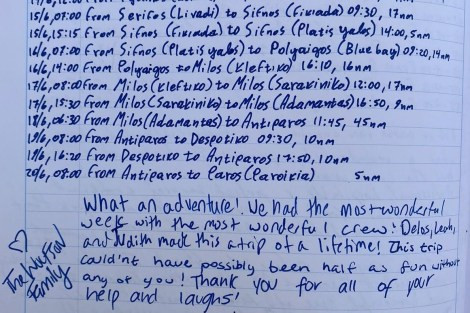 15/6, 07:00 From Serifos (Livadi) to Sifnos (Fikiada) 09:30, 17nm
15/6, 15:15 From Sifnos (Fikiada) to Sifnos (Platis yalos) 14:00, 5nm
16/6, 07:00 From Sifnos (Platis yalos) to Polyaigos (Blue bay) 09:20, 14nm
16/6, 14:00 From Polyaigos to Milos (Kleftiko) 16:10, 16nm
17/6, 08:00 From Milos (Kleftiko) to Milos (Sarakiniko) 12:00, 17nm
17/6, 15:30 From Milos (Sarakiniko) to Milos (Adamantas) 16:50, 9nm
18/6, 06:30 From Milos (Adamantas) to Antiparos 11:45, 45nm
19/6, 08:00 From Antiparos to Despotiko 09:30, 10nm
19/6, 16:20 From Despotiko to Antiparos 17:50, 10nm
20/6, 08:00 From Antiparos to Paros (Paroikia) 5nm
What an adventure! We had the most wonderful
week with the most wonderful crew! Delos, Leah,
and Judith made this a trip of a lifetime! This trip
could'nt have possibly been half as fun without
any of you! Thank you for all of your
help and laughs!
♡
The
Family